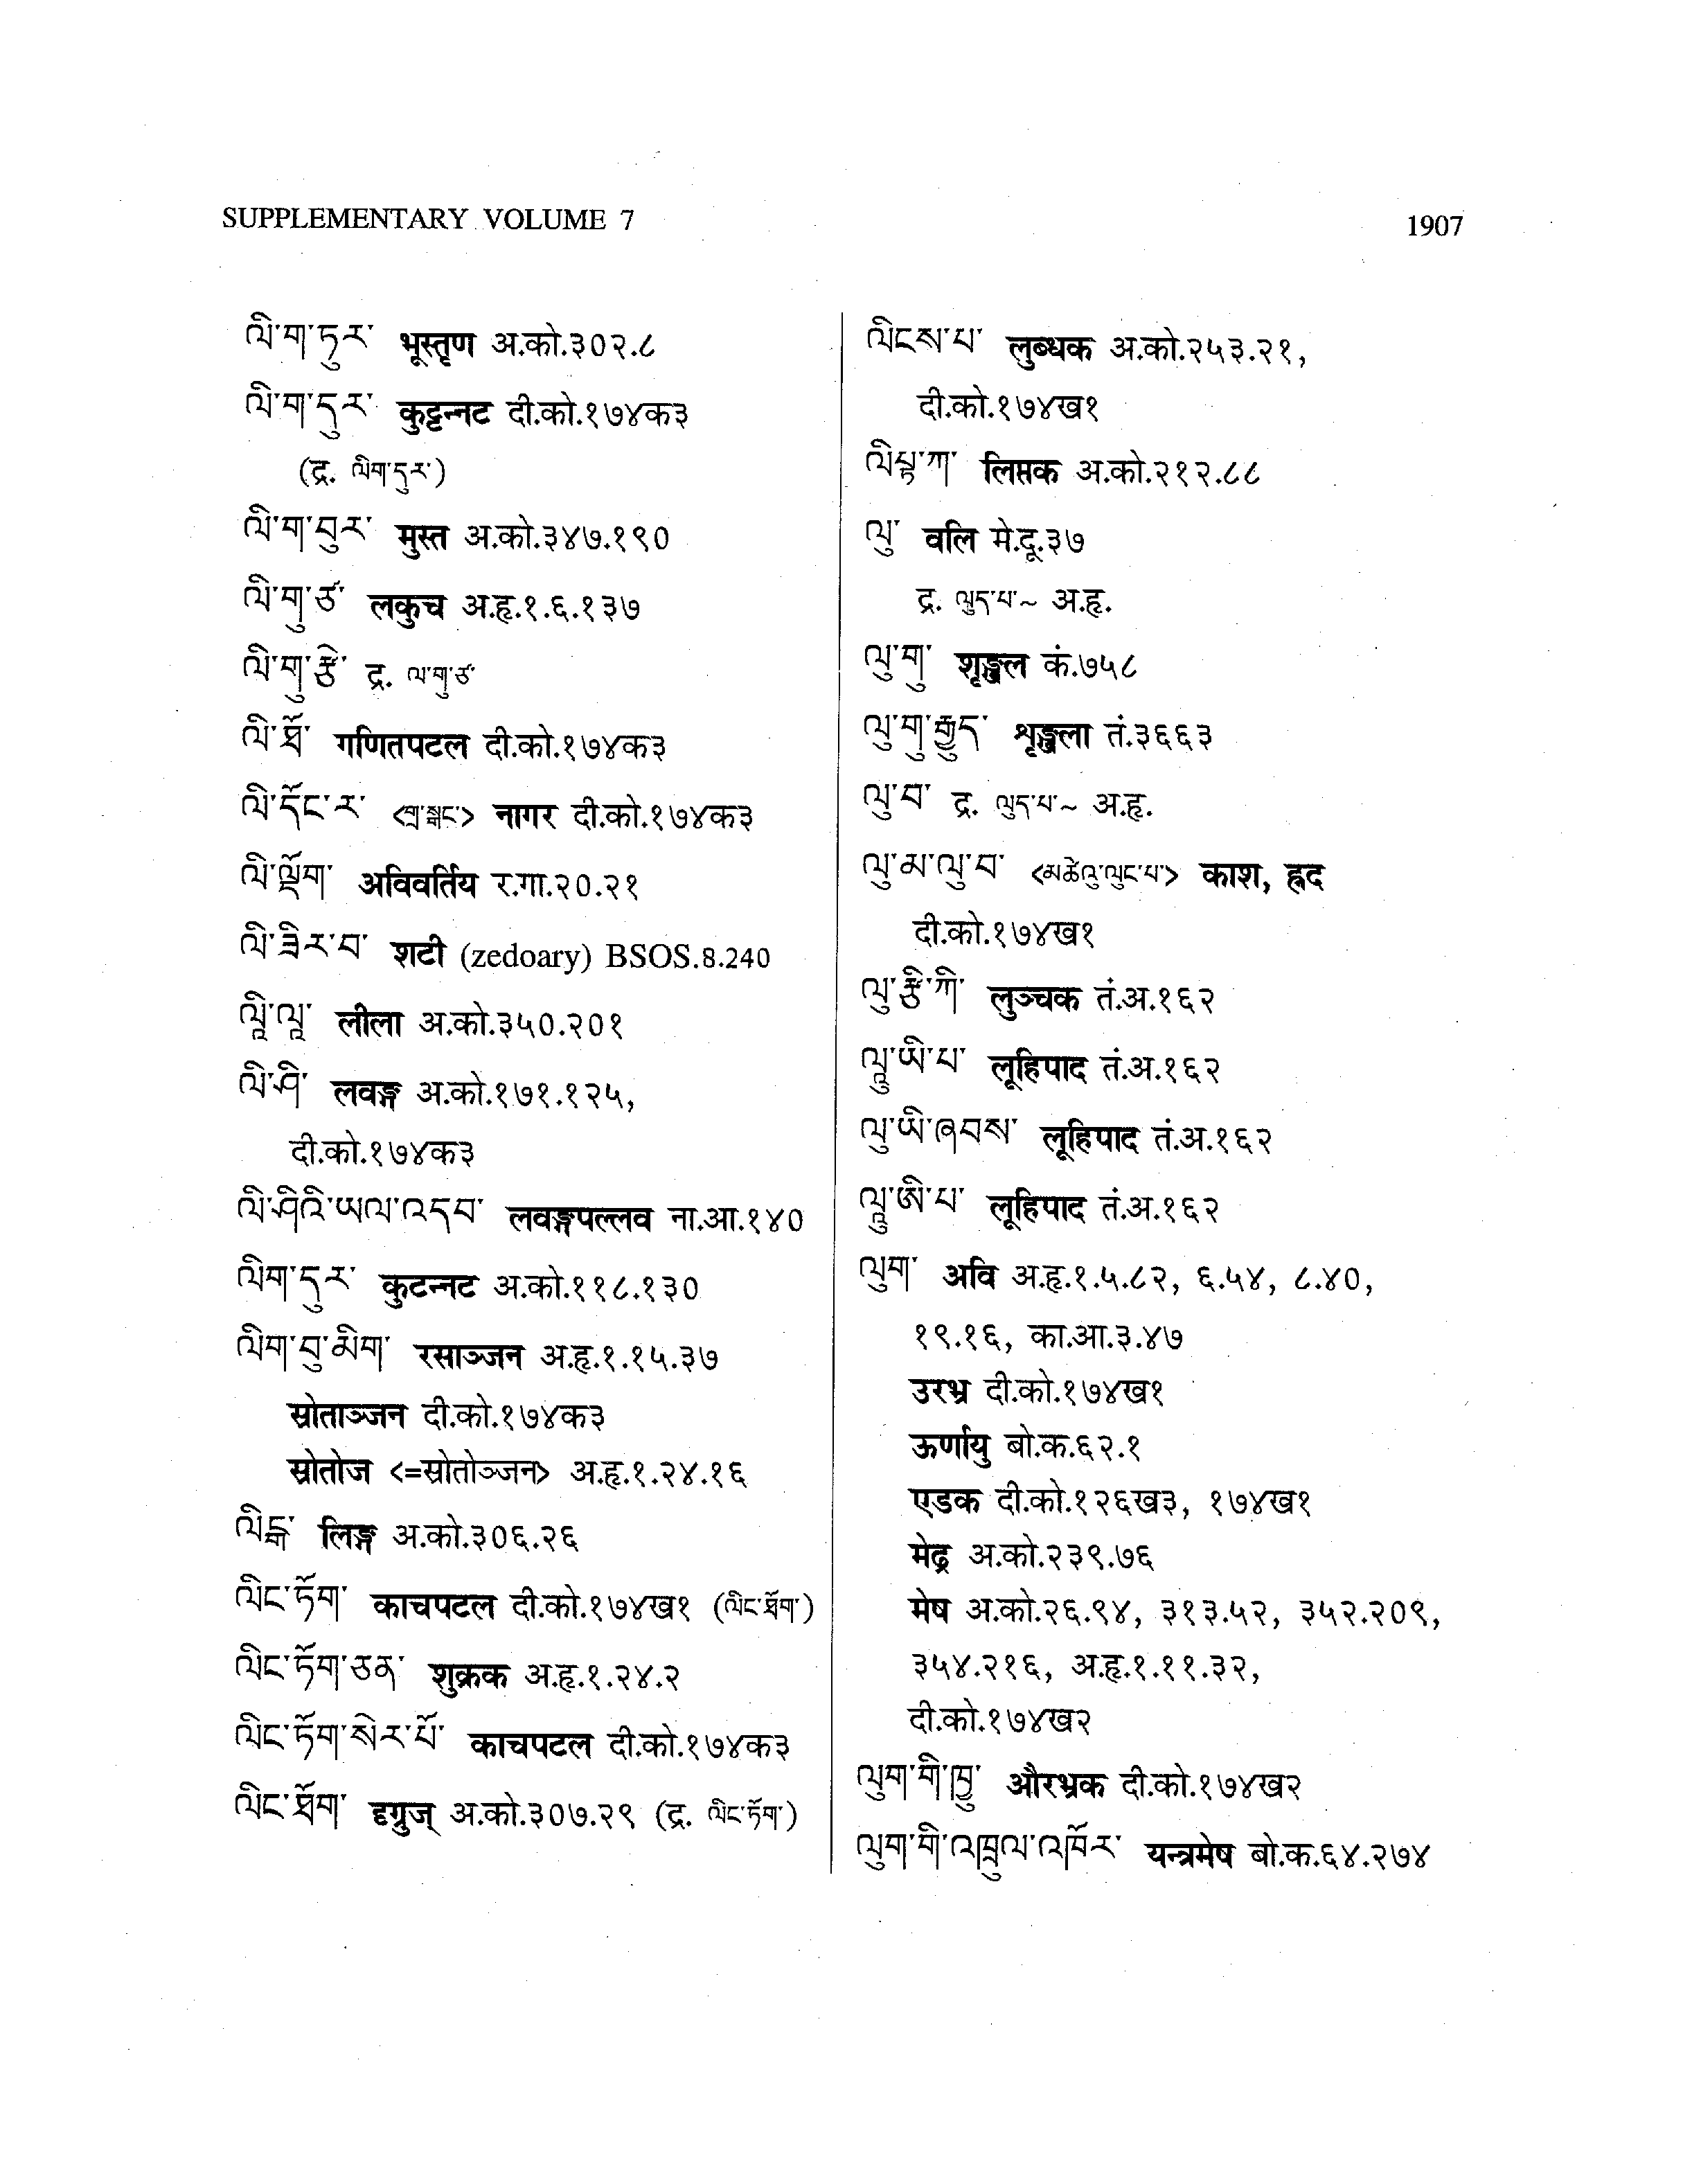 SUPPLEMENTARY VOLUME 7
1907
ལི་ག་ཏུར་ भूस्तृण अ.को.३०२.८
ལི་ག་དུར་ कुट्टन्नट दी.को.१७४क३
(द्र. ལིག་དུར་)
ལི་ག་བུར་ मुस्त अ.को.३४७.१९०
ལི་གུ་ཙ་ लकुच अ.हृ.१.६.१३७
ལི་གུ་རྩེ་ द्र. ལ་གུ་ཙ་
ལི་ཐོ་ गणितपटल दी.को.१७४क३
ལི་དོང་ར་ <ཀྲ་སྒང་> नागर दी.को.१७४क३
ལི་ལྡོག་ अविवर्तिय र.गा.२०.२१
ལི་ཟིར་བ་ शटी (zedoary) BSOS.8.240
ལཱི་ལཱ་ लीला अ.को.३५०.२०१
ལི་ཤི་ लवङ्ग अ.को.१७१.१२५,
दी.को.१७४क३
ལི་ཤིའི་ཡལ་འདབ་ लवङ्गपल्लव ना.आ.१४०
ལིག་དུར་ कुटन्नट अ.को.११८.१३०
ལིག་བུ་མིག་ रसाञ्जन अ.हृ.१.१५.३७
स्रोताञ्जन दी.को.१७४क३
स्रोतोज <=स्रोतोञ्जन> अ.हृ.१.२४.१६
ལིངྒ་ लिङ्ग अ.को.३०६.२६
ལིང་ཏོག་ काचपटल दी.को.१७४ख१ (ལིང་ཐོག་)
ལིང་ཏོག་ཅན་ शुक्रक अ.हृ.१.२४.२
ལིང་ཏོག་སེར་པོ་ काचपटल दी.को.१७४क३
ལིང་ཐོག་ दृग्रुज् अ.को.३०७.२९ (द्र. ལིང་ཏོག་)
ལིངས་པ་ लुब्धक अ.को.२५३.२१,
दी.को.१७४ख१
ལིཔྟ་ཀ་ लिप्तक अ.को.२१२.८८
ལུ་ वलि मे.दू.३७
द्र. ལུད་པ་~ अ.हृ.
ལུ་གུ་ शृङ्खल कं.७५८
ལུ་གུ་རྒྱུད་ शृङ्खला तं.३६६३
ལུ་བ་ द्र. ལུད་པ་~ अ.हृ.
ལུ་མ་ལུ་བ་ <མཚེའུ་ལུང་པ་> काश, ह्रद
दी.को.१७४ख१
ལུ་རྩི་ཀི་ लुञ्चक तं.अ.१६२
ལཱུ་ཡི་པ་ लूहिपाद तं.अ.१६२
ལུ་ཡི་ཞབས་ लूहिपाद तं.अ.१६२
ལཱུ་ཨི་པ་ लूहिपाद तं.अ.१६२
ལུག་ अवि अ.हृ.१.५.८२, ६.५४, ८.४०,
१९.१६, का.आ.३.४७
उरभ्र दी.को.१७४ख१
ऊर्णायु बो.क.६२.१
एडक दी.को.१२६ख३, १७४ख१
मेढ्र अ.को.२३९.७६
मेष अ.को.२६.९४, ३१३.५२, ३५२.२०९,
३५४.२१६, अ.हृ.१.११.३२,
दी.को.१७४ख२
ལུག་གི་ཁྱུ་ औरभ्रक दी.को.१७४ख२
ལུག་གི་འཁྲུལ་འཁོར་ यन्त्रमेष बो.क.६४.२७४